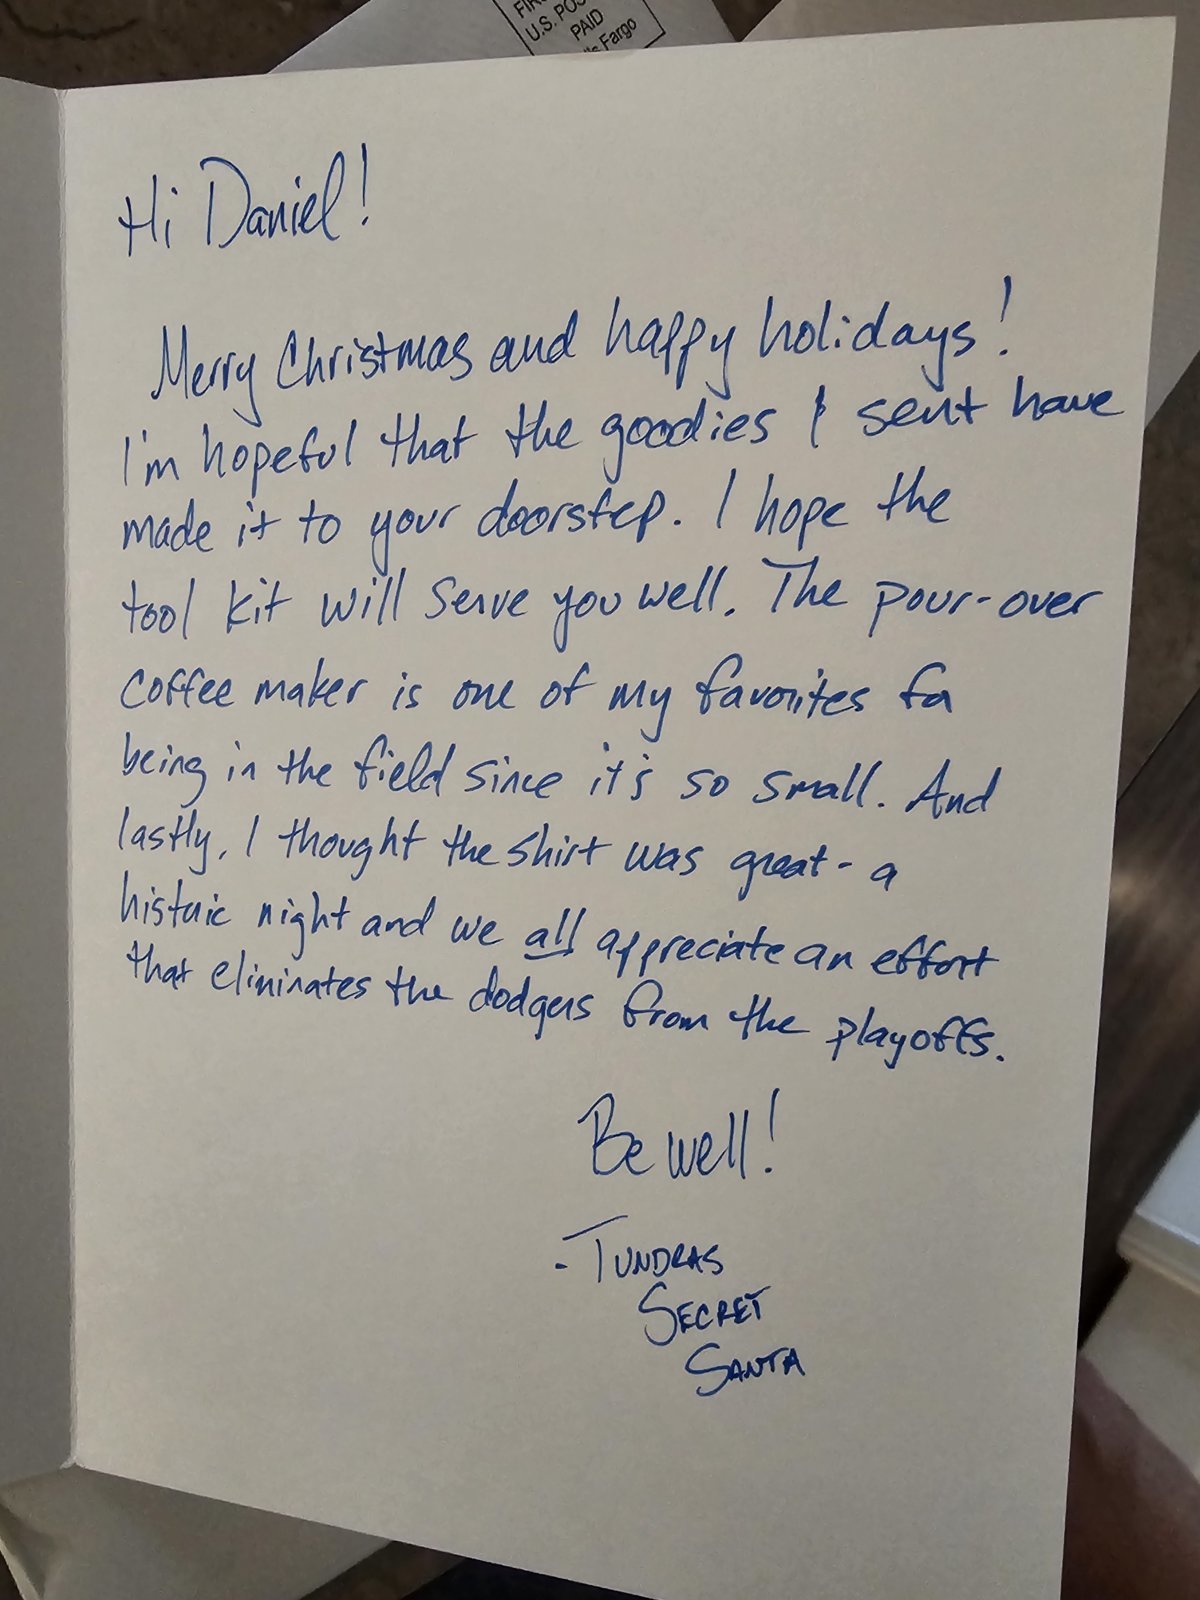 FIR
U.S. POS
PAID
ls Fargo
Hi Daniel!
Merry Christmas and happy holidays!
I'm hopeful that the goodies I sent have
made it to your doorstep. I hope the
tool kit will serve you well. The pour-over
coffee maker is one of my favorites for
being in the field since it's so small. And
lastly, I thought the shirt was great - a
historic night and we all appreciate an effort
that eliminates the dodgers from the playoffs.
Be well!
- TUNDRAS
SECRET
SANTA